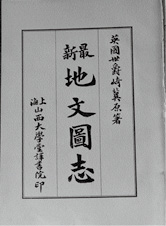 英國世爵崎冀原著
最新
地文圖志
上海
山西大學堂譯書院印